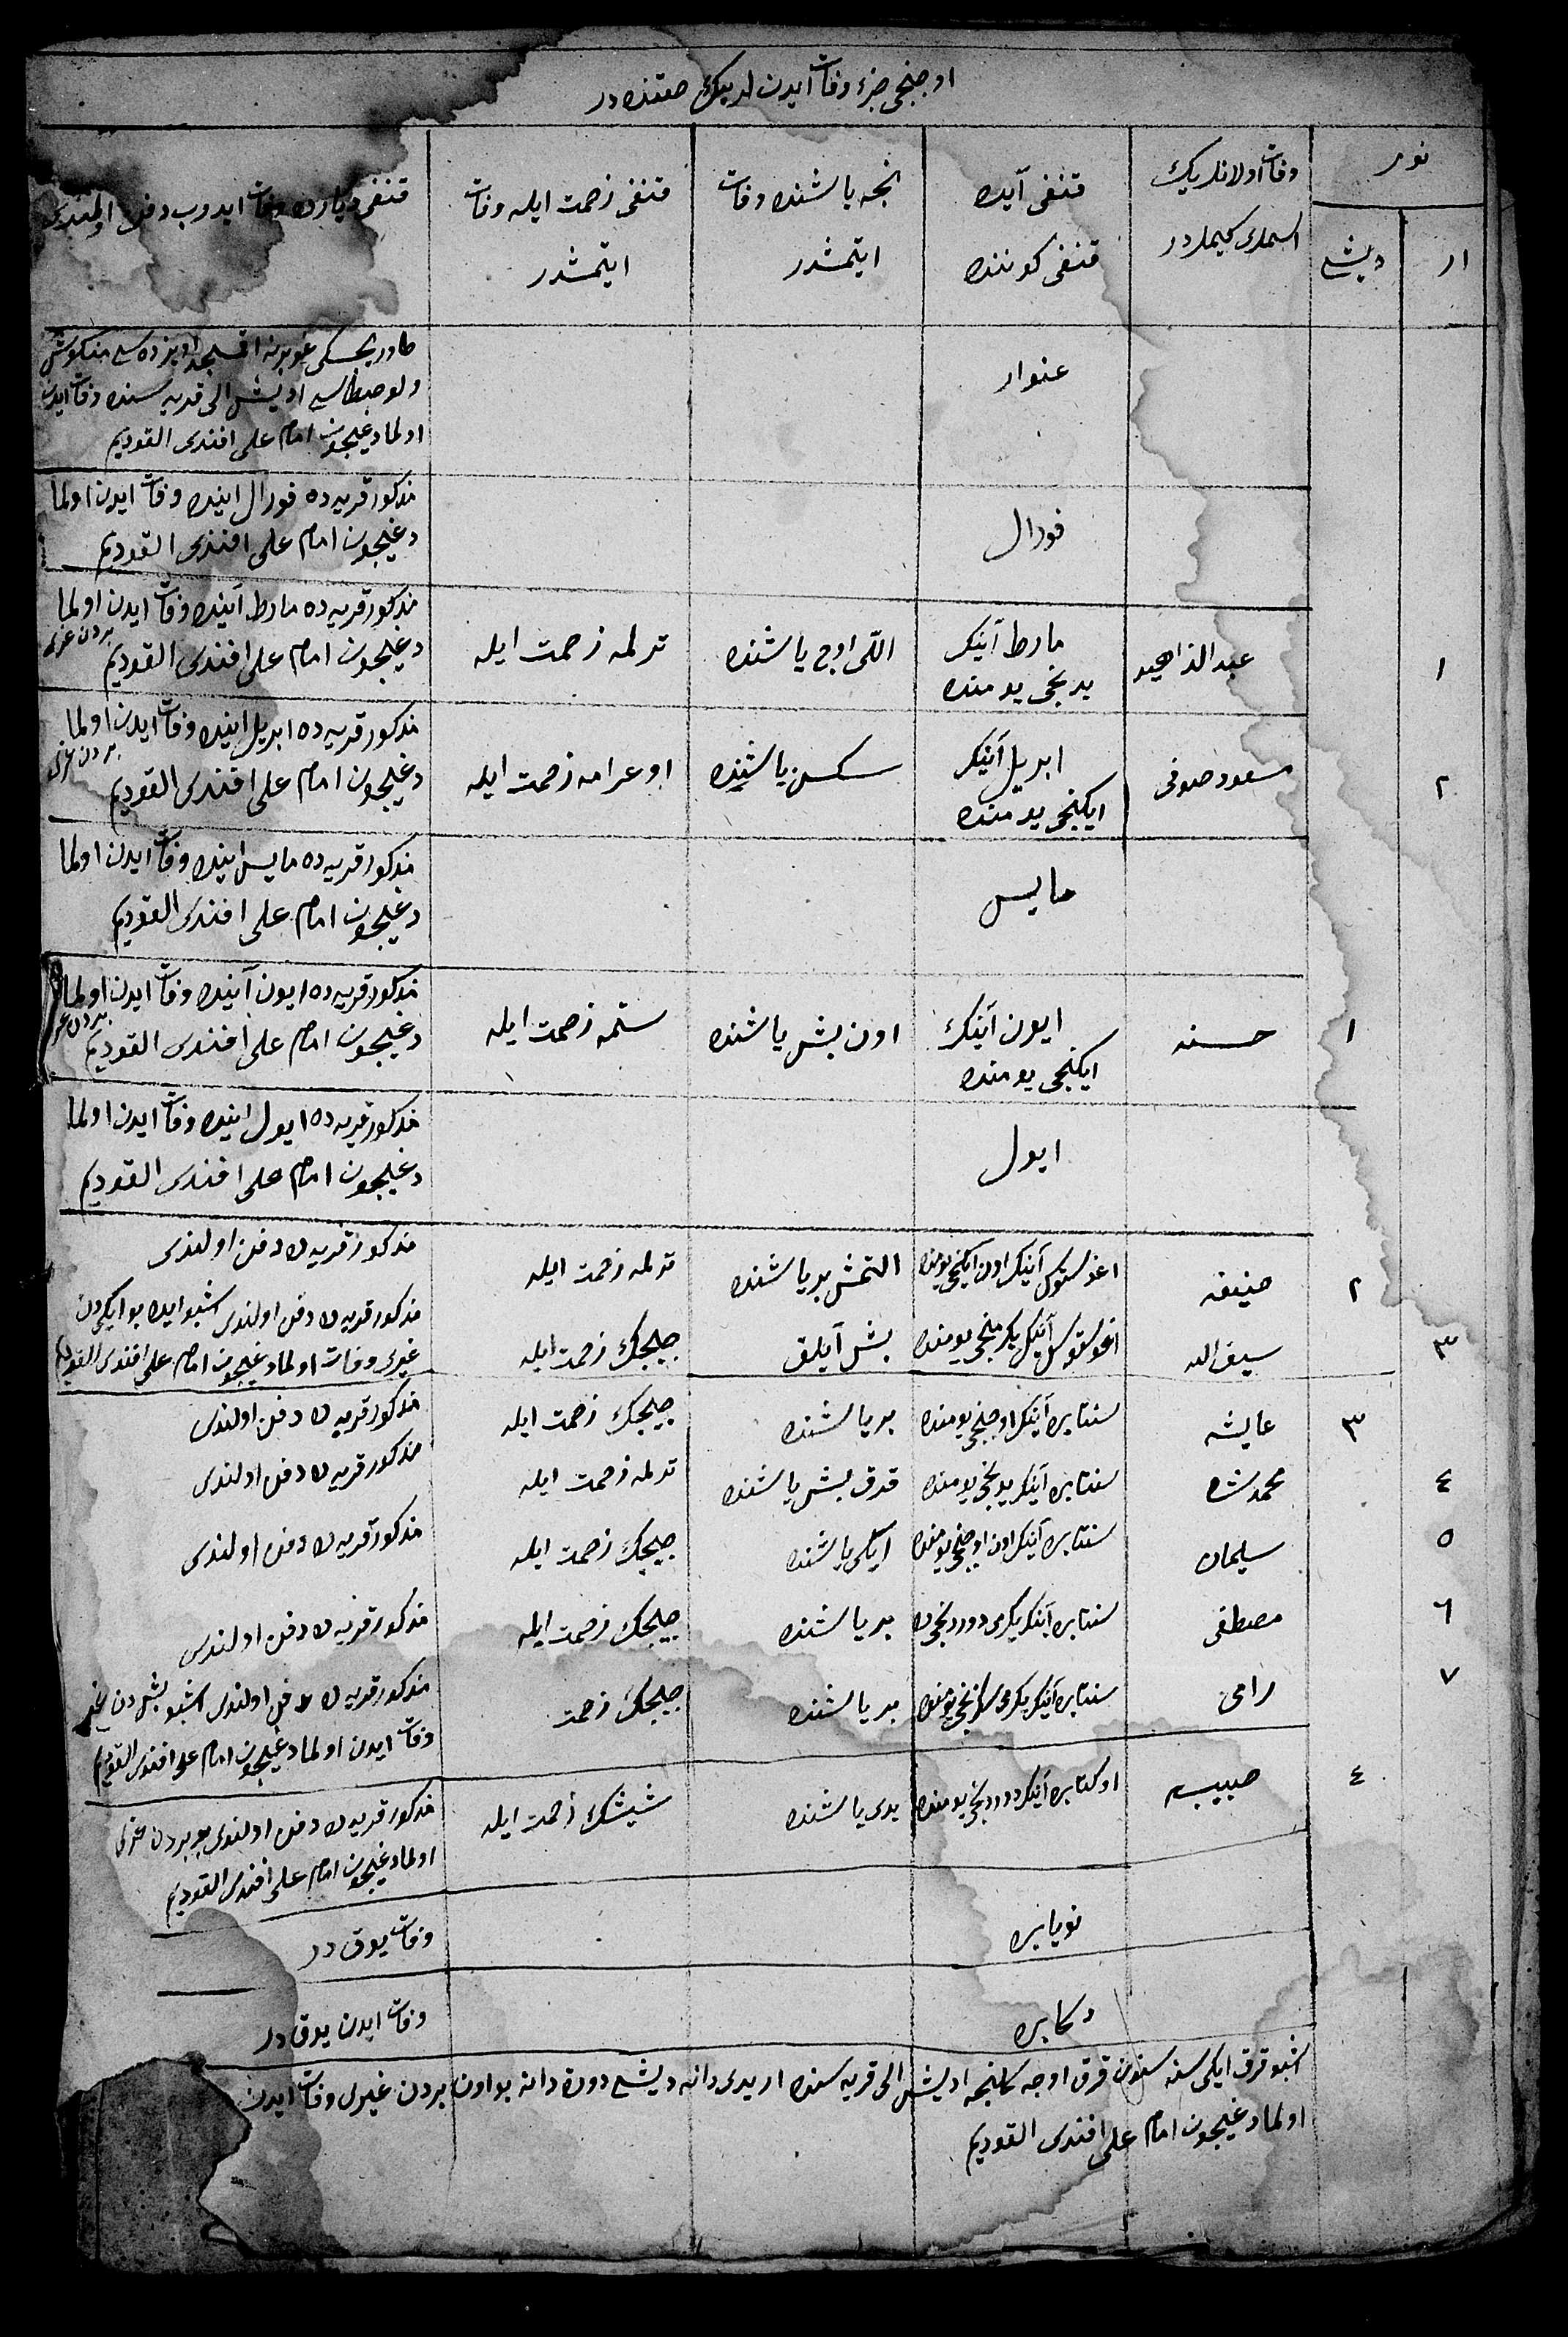 اوچنجی جزء وفات ایدن لریک حقنده در
نومر
ار
دیشی
وفات اولانلریک
اسملری کیملردر
قنغی آیده
قنغی کوننده
نجه یاشنده وفات
ایتمشدر
قنغی زحمت ایله وفات
ایتمشدر
قنغی دیارده وفات ایدوب دفن اولمندی
عنوار
ولوصطاسی اویشن الی قریه سنده وفات ایدن
اولمادغیچون امام علی افندی القودیم
فورال
مذکور قریه ده فورال اینده وفات ایدن اولما
دغیچون امام علی افندی القودیم
١
عبدالذاهید
مارط آینک
یدنجی یومنده
اللی اوچ یاشنده
تدلمه زحمت ایله
مذکور قریه ده مارط آینده وفات ایدن اولما
بردن غری
دغیچون امام علی افندی القودیم
٢
مسعود صوفی
ابریل آینک
ایکنجی یومنده
سکسن یاشنده
اوعرامه زحمت ایله
مذکور قریه ده ابریل اینده وفات ایدن اولما
بردن غری
دغیچون امام علی افندی القودیم
مایس
مذکور قریه ده مایس اینده وفات ایدن اولما
دغیچون امام علی افندی القودیم
١
حسنه
ایون آینک
ایکنجی یومنده
اون بش یاشنده
ستمه زحمت ایله
مذکور قریه ده ایون آینده وفات ایدن اولما
بردن غری
دغیچون امام علی افندی القودیم
ایول
مذکور قریه ده ایول اینده وفات ایدن اولما
دغیچون امام علی افندی القودیم
٢
حنیفه
اغوستوس آینک اون ایکنجی یومنده
التمش بر یاشنده
تدلمه زحمت ایله
مذکور قریه ده دفن اولندی
٣
سیف الله
اغوستوس آینک یکرمنجی یومنده
بش آیلق
چیچک زحمت ایله
مذکور قریه ده دفن اولندی اشبو ایده بو ایکیدن
غیری وفات اولمادغیچون امام علی افندی القودیم
٣
عایشه
سنتابره آینک اوچنجی یومنده
بر یاشنده
چیچک زحمت ایله
مذکور قریه ده دفن اولندی
٤
محمدشاه
سنتابره آینک یدنجی یومنده
قرق بش یاشنده
تدلمه زحمت ایله
مذکور قریه ده دفن اولندی
٥
سلیمان
سنتابره آینک اون اوچنجی یومنده
ایکی یاشنده
چیچک زحمت ایله
مذکور قریه ده دفن اولندی
٦
مصطفی
سنتابره آینک یکرمی دوردنجی ده
بر یاشنده
چیچک زحمت ایله
مذکور قریه ده دفن اولندی
٧
رامی
سنتابره آینک یکرمی سکزنجی یومنده
بر یاشنده
چیچک زحمت
مذکور قریه ده دفن اولندی اشبو بشدن غیر
وفات ایدن اولمادغیچون امام علی افندی القودیم
٤
حبیبه
اوکتابره آینک دوردنجی یومنده
یدی یاشنده
شیشک زحمت ایله
مذکور قریه ده دفن اولندی بو بردن غری
اولمادغیچون امام علی افندی القودیم
نویابره
وفات یوق در
دکابره
وفات ایدن یوق در
اشبو قرق ایکی سنه سندن قرق اوچه کلنجه اویشن الی قریه سنده ار یدی دانه دیشی دورة دانه بو اون بردن غیری وفات ایدن
اولمادغیچون امام علی افندی القودیم